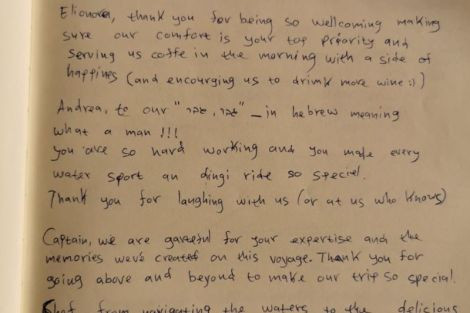 Elionora, thank you for being so wellcoming making
sure our comfort is your top priority and
serving us coffe in the morning with a side of
happines (and encourging us to drink more wine :)
Andrea, to our "גבר, גבר" - in hebrew meaning
what a man !!!
you are so hard working and you made every
water sport an dingi ride so special.
Thank you for laughing with us (or at us who knows)
Captain, we are gateful for your expertise and the
memories we've created on this voyage. Thank you for
going above and beyond to make our trip so special.
Chef from navigating the waters to the delicious